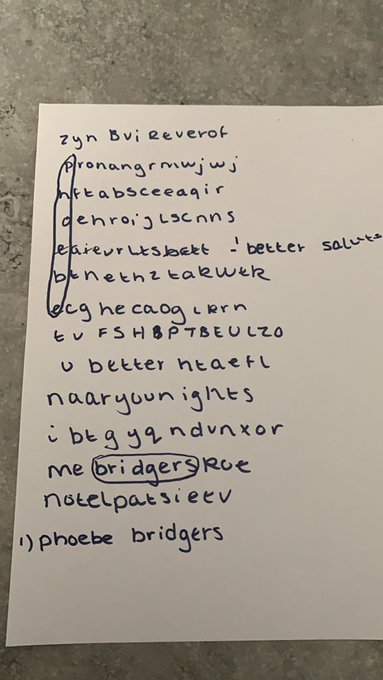 zyn Bvi Reverof
pronangrmwjwj
hftabsceeaqir
oehroijlscnns
eaievrltsbett -! better salute
btnethztakwtk
ecghecaogikrn
tv FSHBPTBEULZO
u better htaefl
naaryounights
i btgyqndvnxor
me bridgersRoe
notelpatsieev
1) phoebe bridgers